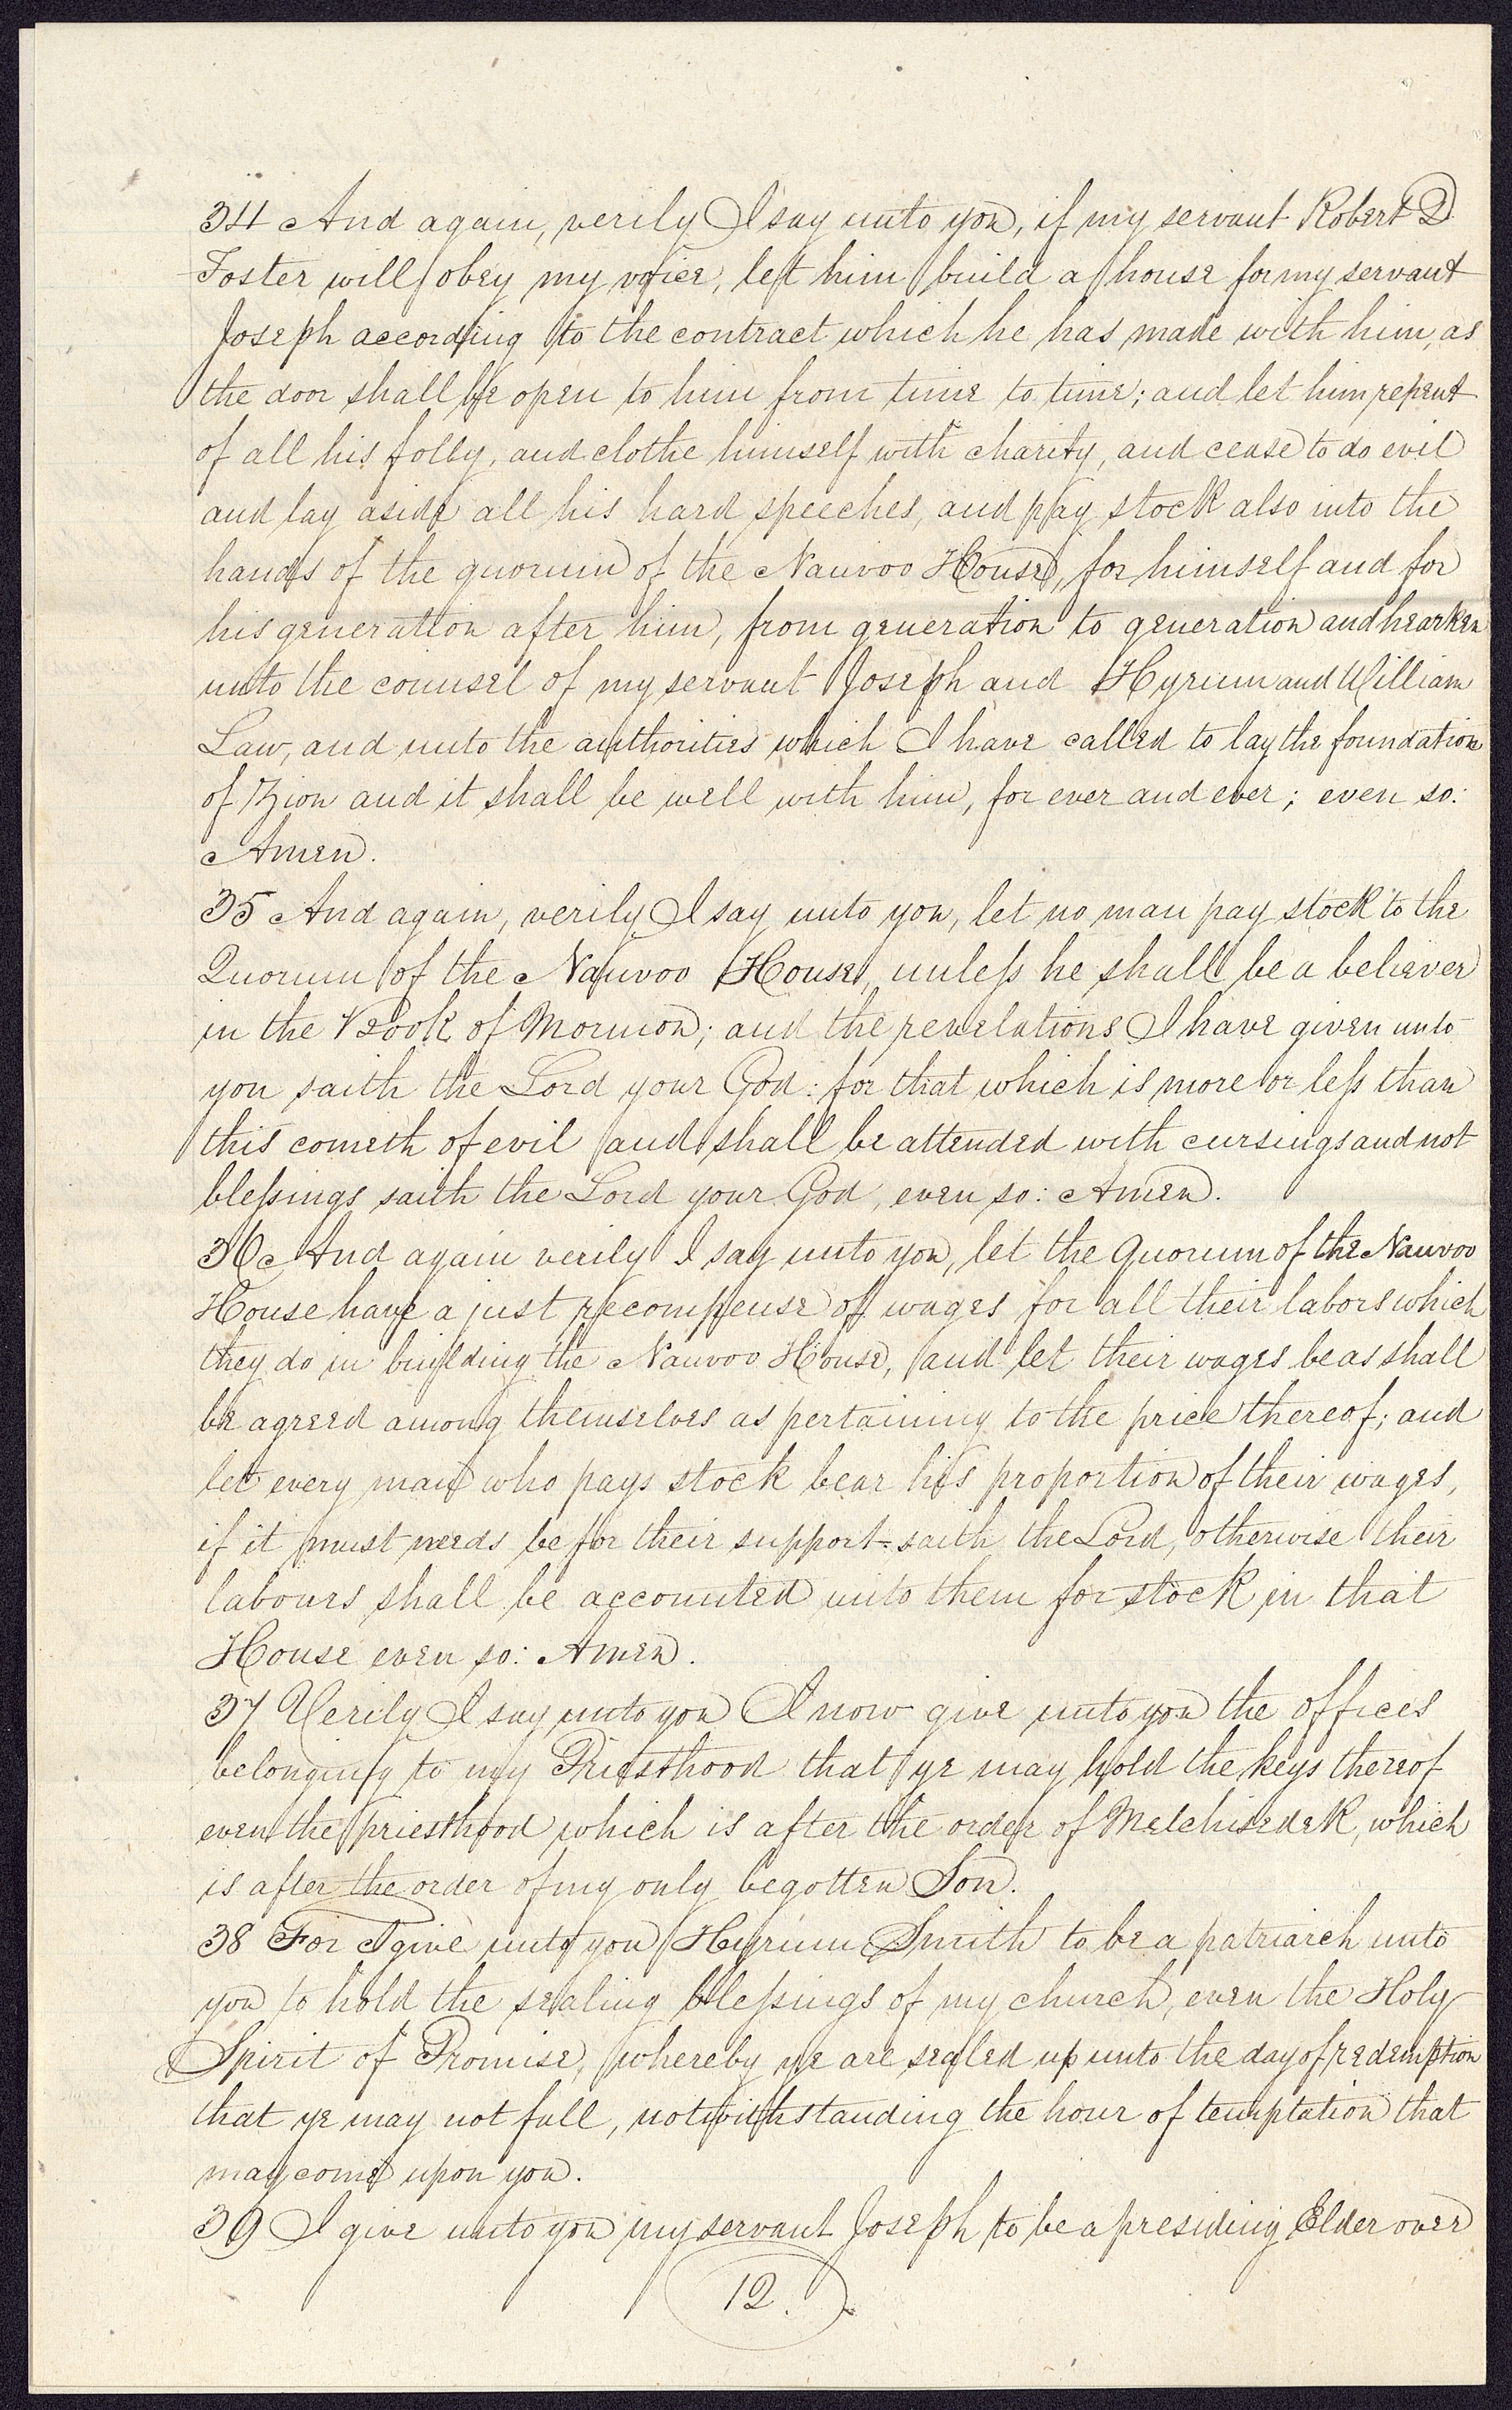 34 And again, verily I say unto you, if my servant Robert D
Foster will obey my voice, let him build a house for my servant
Joseph according to the contract which he has made with him, as
the door shall be open to him from time to time; and let him repent
of all his folly, and clothe himself with charity, and cease to do evil
and lay aside all his hard speeches, and pay stock also into the
hands of the quorum of the Nauvoo House, for himself and for
his generation after him, from generation to generation and hearken
unto the counsel of my servant Joseph and Hyrum and William
Law, and unto the authorities which I have called to lay the foundation
of Zion and it shall be well with him, for ever and ever; even so:
Amen.
35 And again, verily I say unto you, let no man pay stock to the
Quorum of the Nauvoo House, unless he shall be a believer
in the Book of Mormon; and the revelations I have given unto
you saith the Lord your God: for that which is more or less than
this cometh of evil and shall be attended with cursings and not
blessings saith the Lord your God, even so: Amen.
36 And again verily I say unto you, let the Quorum of the Nauvoo
House have a just recompense of wages for all their labors which
they do in building the Nauvoo House, and let their wages be as shall
be agreed among themselves as pertaining to the price thereof; and
let every man who pays stock bear his proportion of their wages,
if it must needs be for their support-saith the Lord, otherwise their
labours shall be accounted unto them for stock in that
House even so: Amen.
37 Verily I say unto you I now give unto you the offices
belonging to my Priesthood that ye may hold the keys thereof
even the priesthood which is after the order of Melchisedek, which
is after the order of my only begotten Son.
38 For I give unto you Hyrum Smith to be a patriarch unto
you to hold the sealing blessings of my church, even the Holy
Spirit of Promise, whereby ye are sealed up unto the day of redemption
that ye may not fall, notwithstanding the hour of temptation that
may come upon you.
39 I give unto you my servant Joseph to be a presiding Elder over
12.